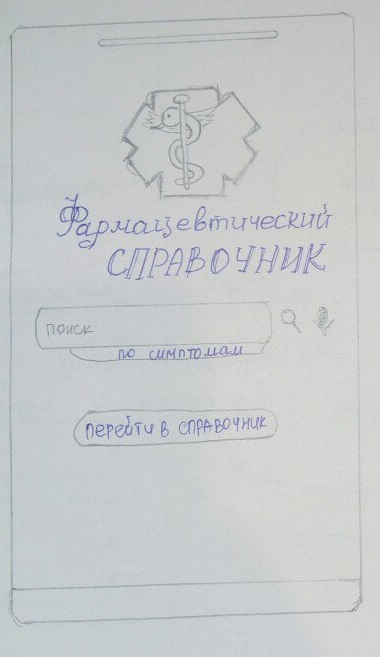 Фармацевтический
СПРАВОЧНИК
ПОИСК
по симптомам
перейти в СПРАВОЧНИК